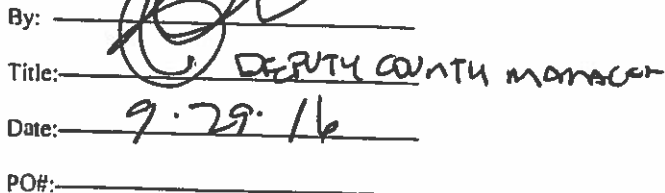 By:
Title: DEPUTY COUNTY MANAGER
Date: 9.29.16
PO#: